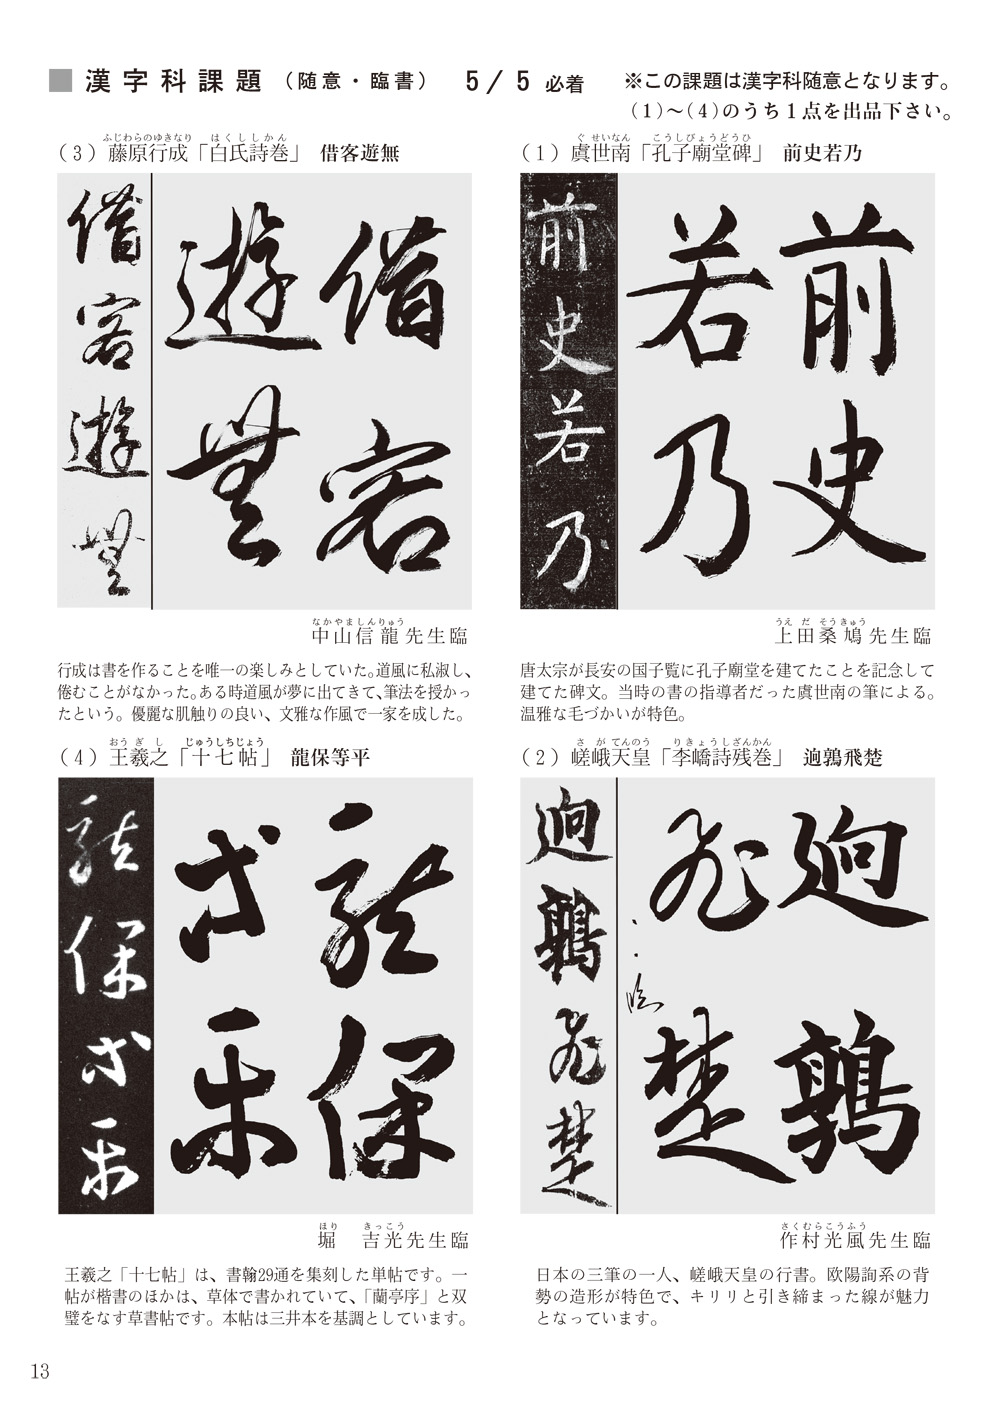 ■漢字科課題（随意・臨書） 5／5 必着 ※この課題は漢字科随意となります。
（1）～（4）のうち１点を出品下さい。
ぐせいなん こうしびょうどうひ
（1）虞世南「孔子廟堂碑」 前史若乃
前史若乃
前史
若乃
うえだそうきゅう
上田桑鳩先生臨
唐太宗が長安の国子覧に孔子廟堂を建てたことを記念して
建てた碑文。当時の書の指導者だった虞世南の筆による。
温雅な毛づかいが特色。
さがてんのう りきょうしざんかん
（2）嵯峨天皇「李嶠詩残巻」 逈鶉飛楚
逈鶉飛楚
逈鶉
飛楚
臨
さくむらこうふう
作村光風先生臨
日本の三筆の一人、嵯峨天皇の行書。欧陽詢系の背
勢の造形が特色で、キリリと引き締まった線が魅力
となっています。
ふじわらのゆきなり はくししかん
（3）藤原行成「白氏詩巻」 借客遊無
借客遊無
借客
遊無
なかやましんりゅう
中山信龍先生臨
行成は書を作ることを唯一の楽しみとしていた。道風に私淑し、
倦むことがなかった。ある時道風が夢に出てきて、筆法を授かっ
たという。優麗な肌触りの良い、文雅な作風で一家を成した。
おうぎし じゅうしちじょう
（4）王羲之「十七帖」 龍保等平
龍保等平
龍保
等平
ほり きっこう
堀 吉光先生臨
王羲之「十七帖」は、書翰29通を集刻した単帖です。一
帖が楷書のほかは、草体で書かれていて、「蘭亭序」と双
璧をなす草書帖です。本帖は三井本を基調としています。
13